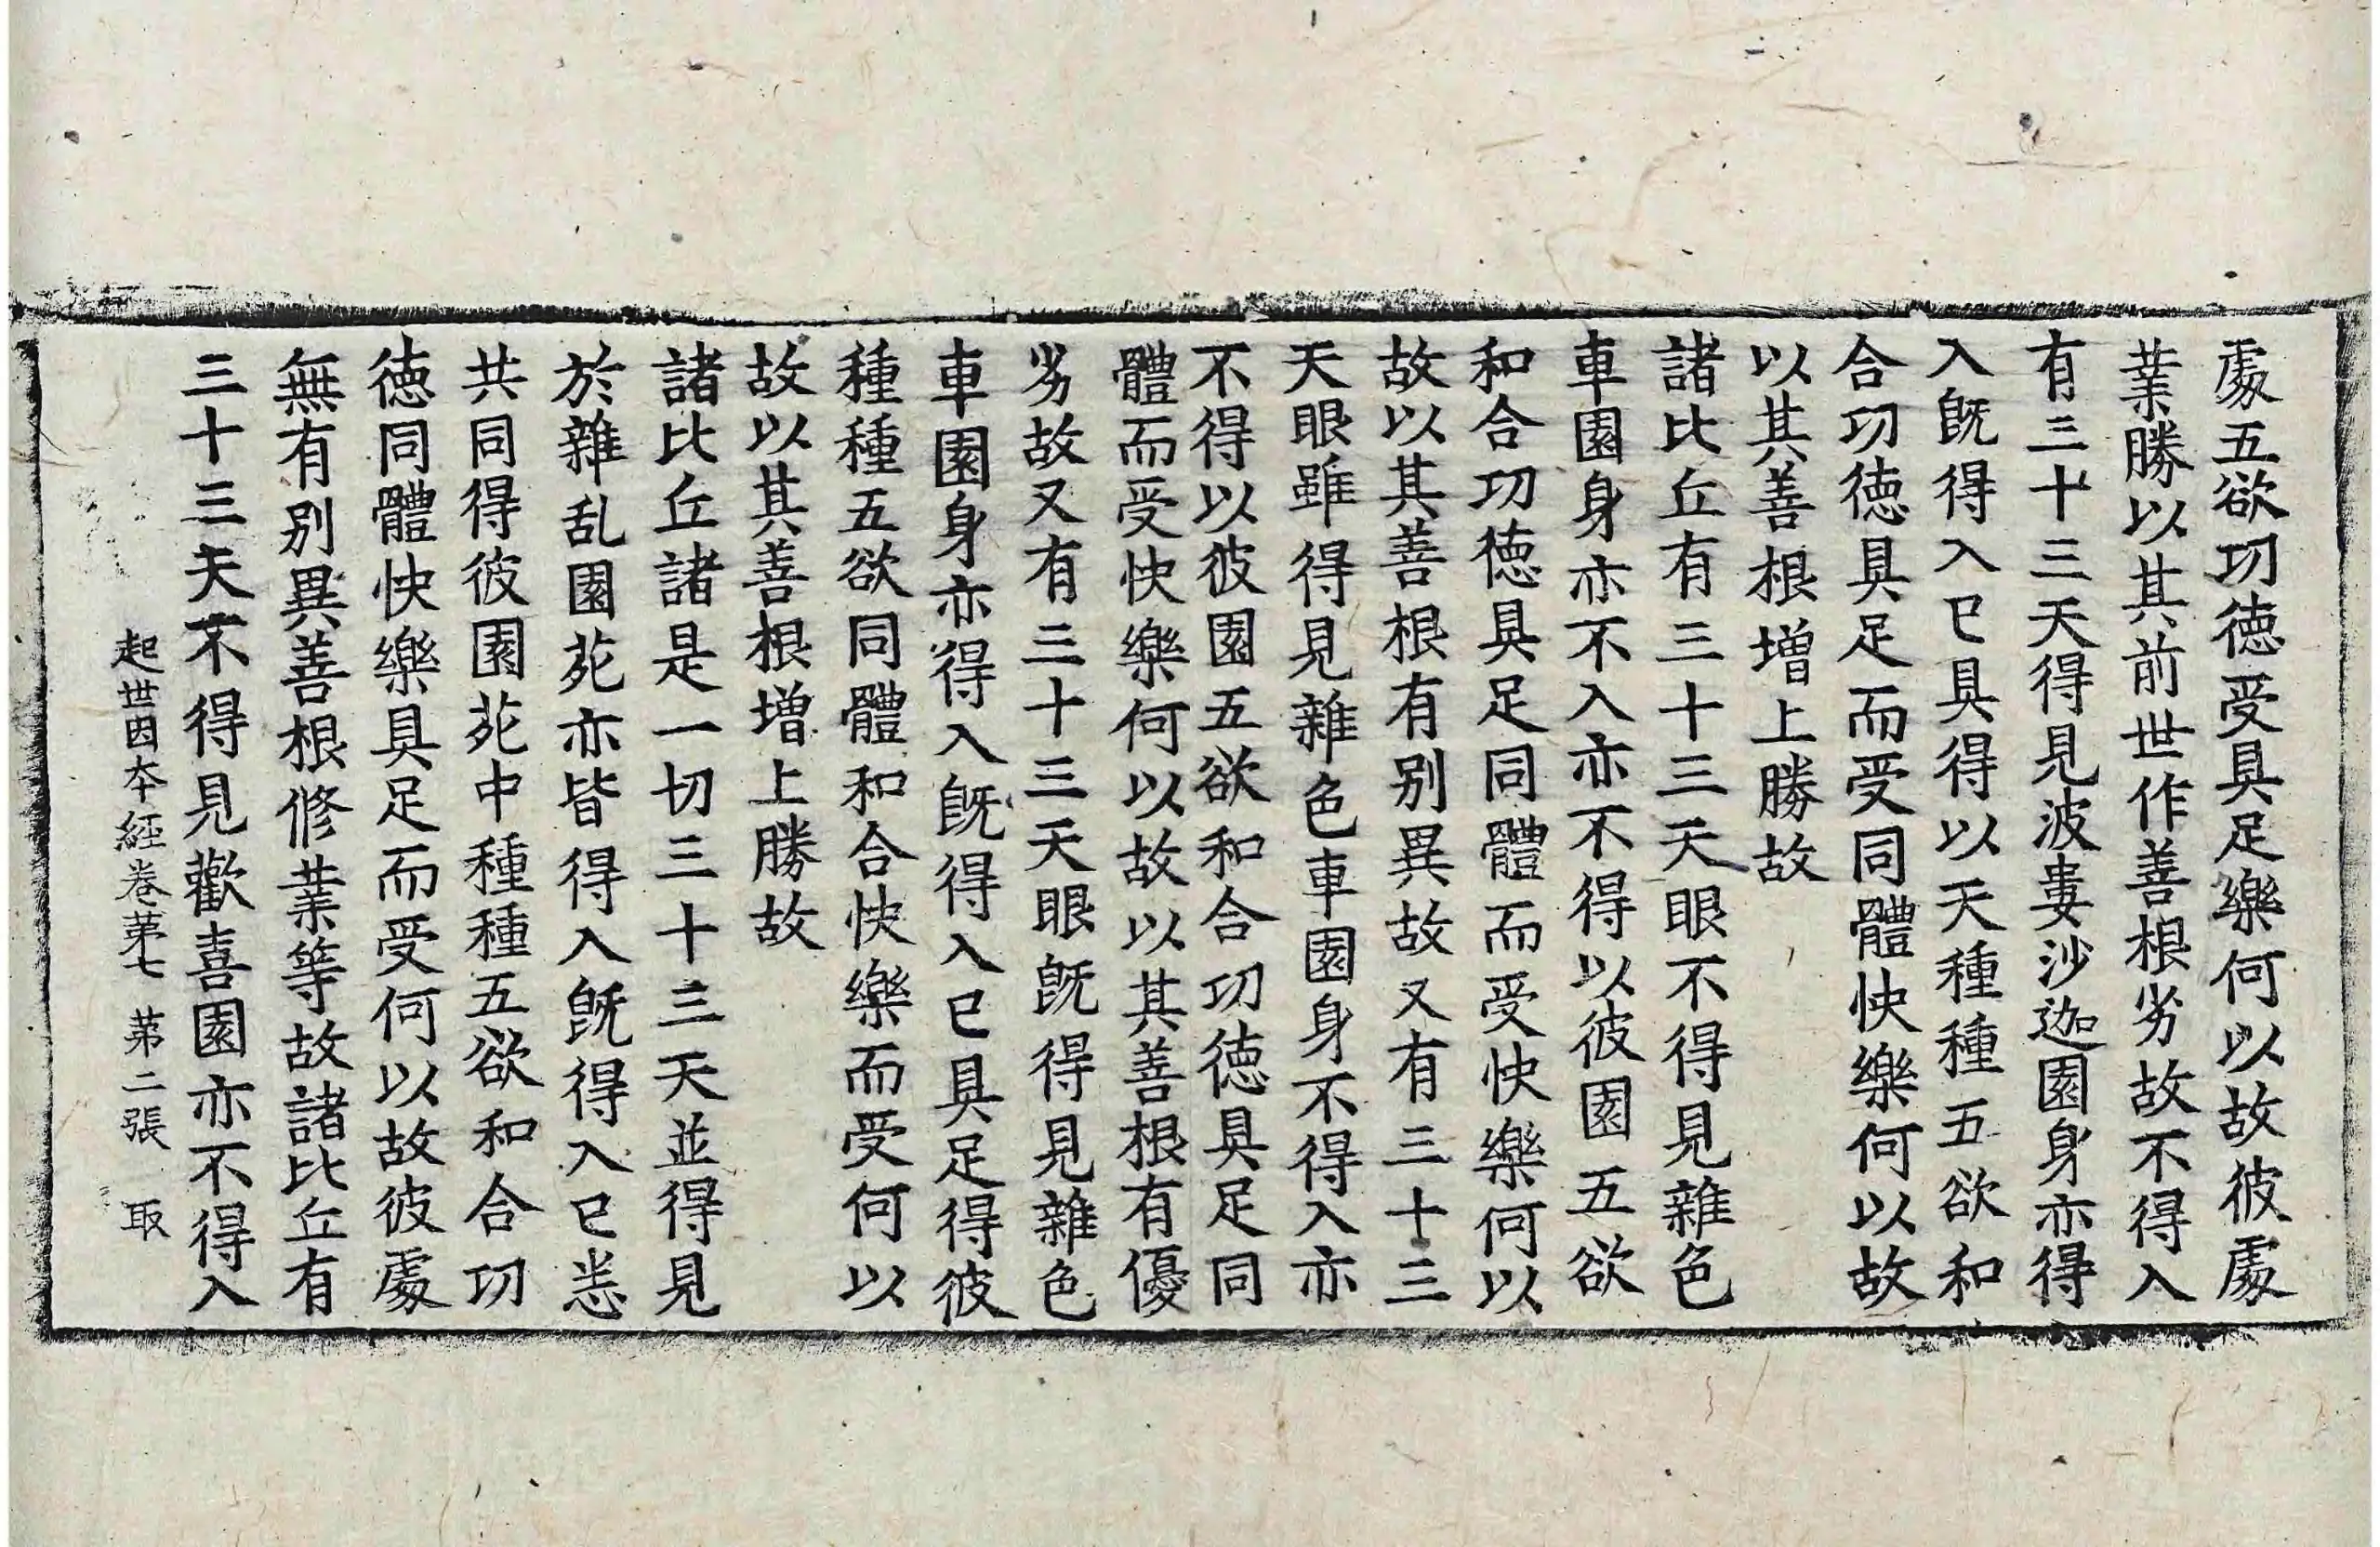 處五欲功徳受具足樂何以故彼處
業勝以其前世作善根劣故不得入
有三十三天得見波婁沙迦園身亦得
入旣得入已具得以天種種五欲和
合功徳具足而受同體快樂何以故
以其善根增上勝故
諸比丘有三十三天眼不得見雜色
車園身亦不入亦不得以彼園五欲
和合功徳具足同體而受快樂何以
故以其善根有别異故又有三十三
天眼雖得見雜色車園身不得入亦
不得以彼園五欲和合功徳具足同
體而受快樂何以故以其善根有優
劣故又有三十三天眼旣得見雜色
車園身亦得入旣得入已具足得彼
種種五欲同體和合快樂而受何以
故以其善根增上勝故
諸比丘諸是一切三十三天並得見
於雜乱園苑亦皆得入旣得入已恙
共同得彼園苑中種種五欲和合功
徳同體快樂具足而受何以故彼處
無有别異善根修業等故諸比丘有
三十三天不得見歡喜園亦不得入
起世因本經卷第七 第二張 取